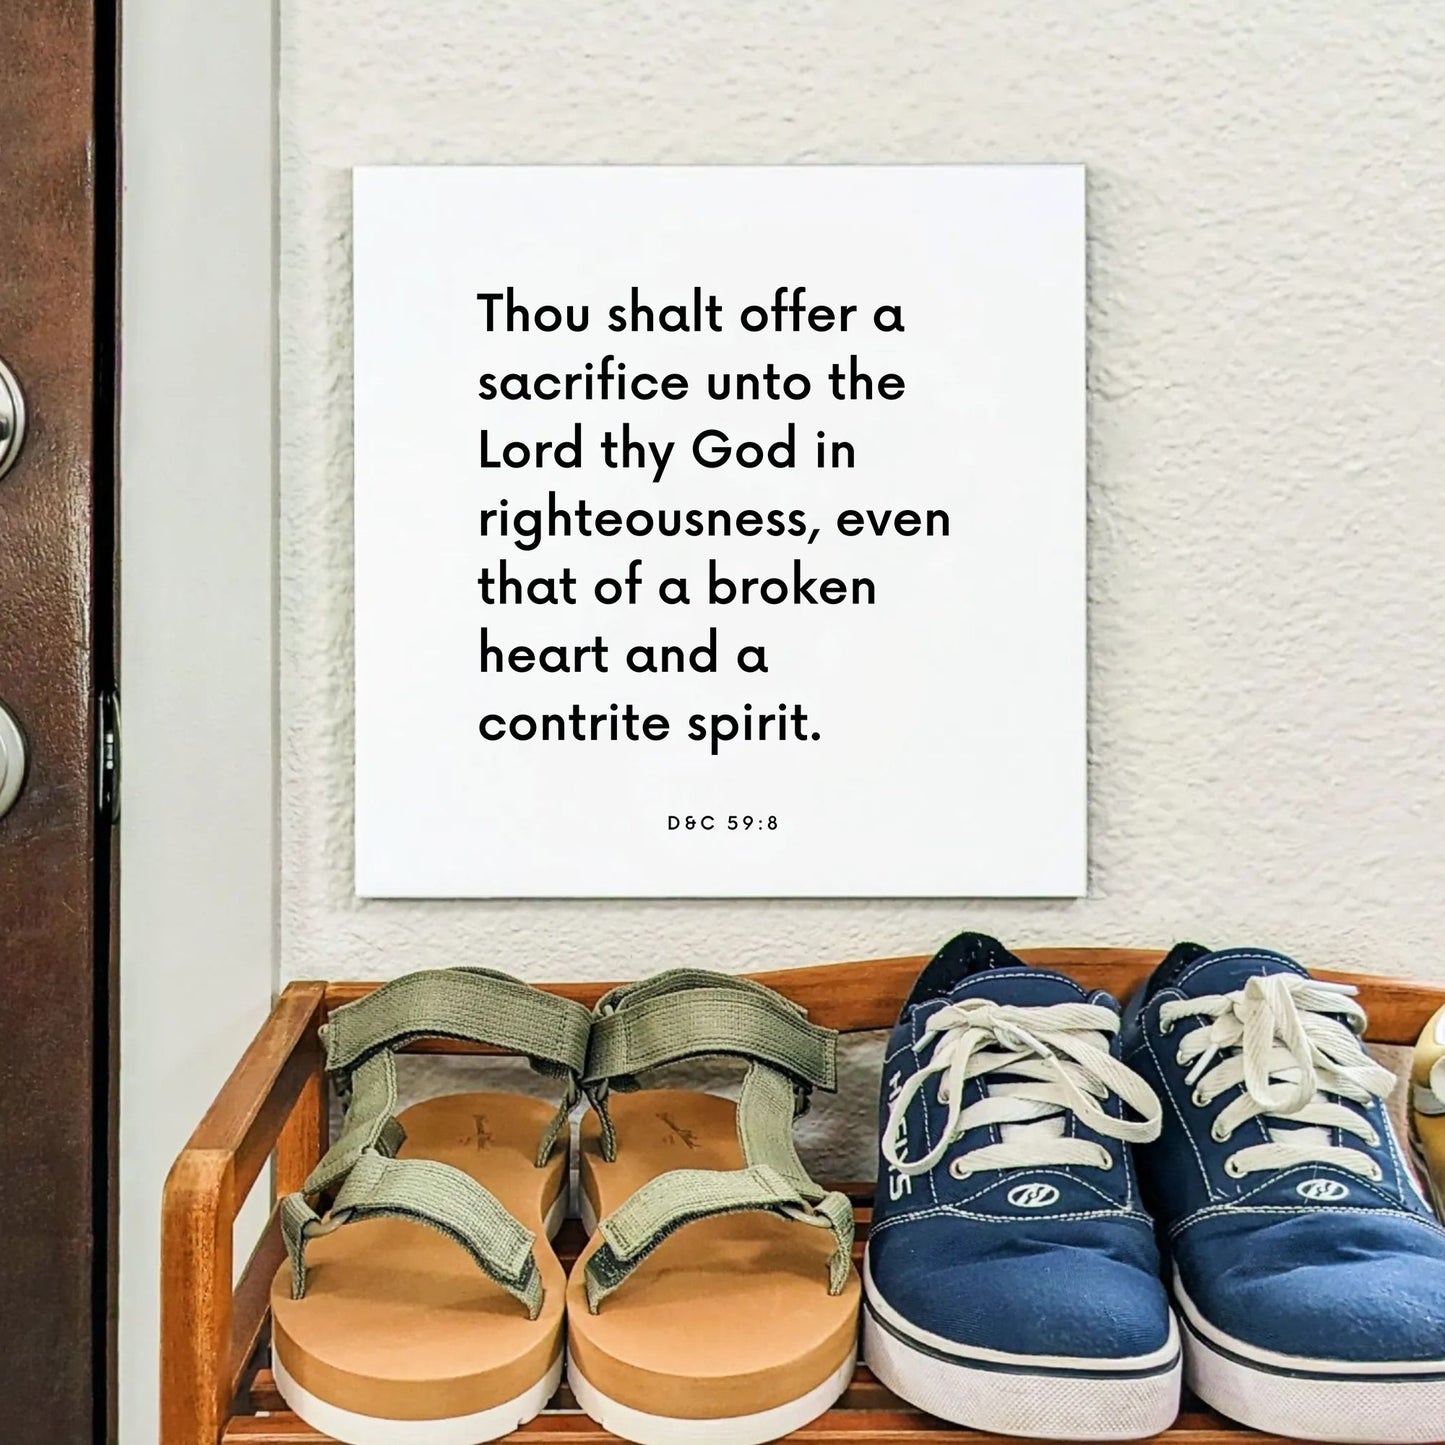 Thou shalt offer a
sacrifice unto the
Lord thy God in
righteousness, even
that of a broken
heart and a
contrite spirit.
D&C 59:8
HEELYS